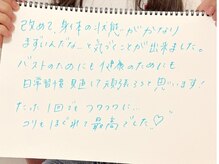 改めて、身体の状態がかなり
まずいんだな…と気づくことが出来ました。
バストのためにも健康のためにも
日常習慣見直して頑張ろうと思います!
たった1回でフワフワに…
コリもほぐれて最高でした♡